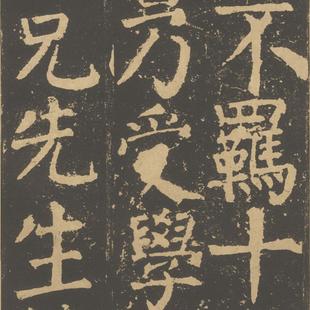 不羈十
男受學
兄先生